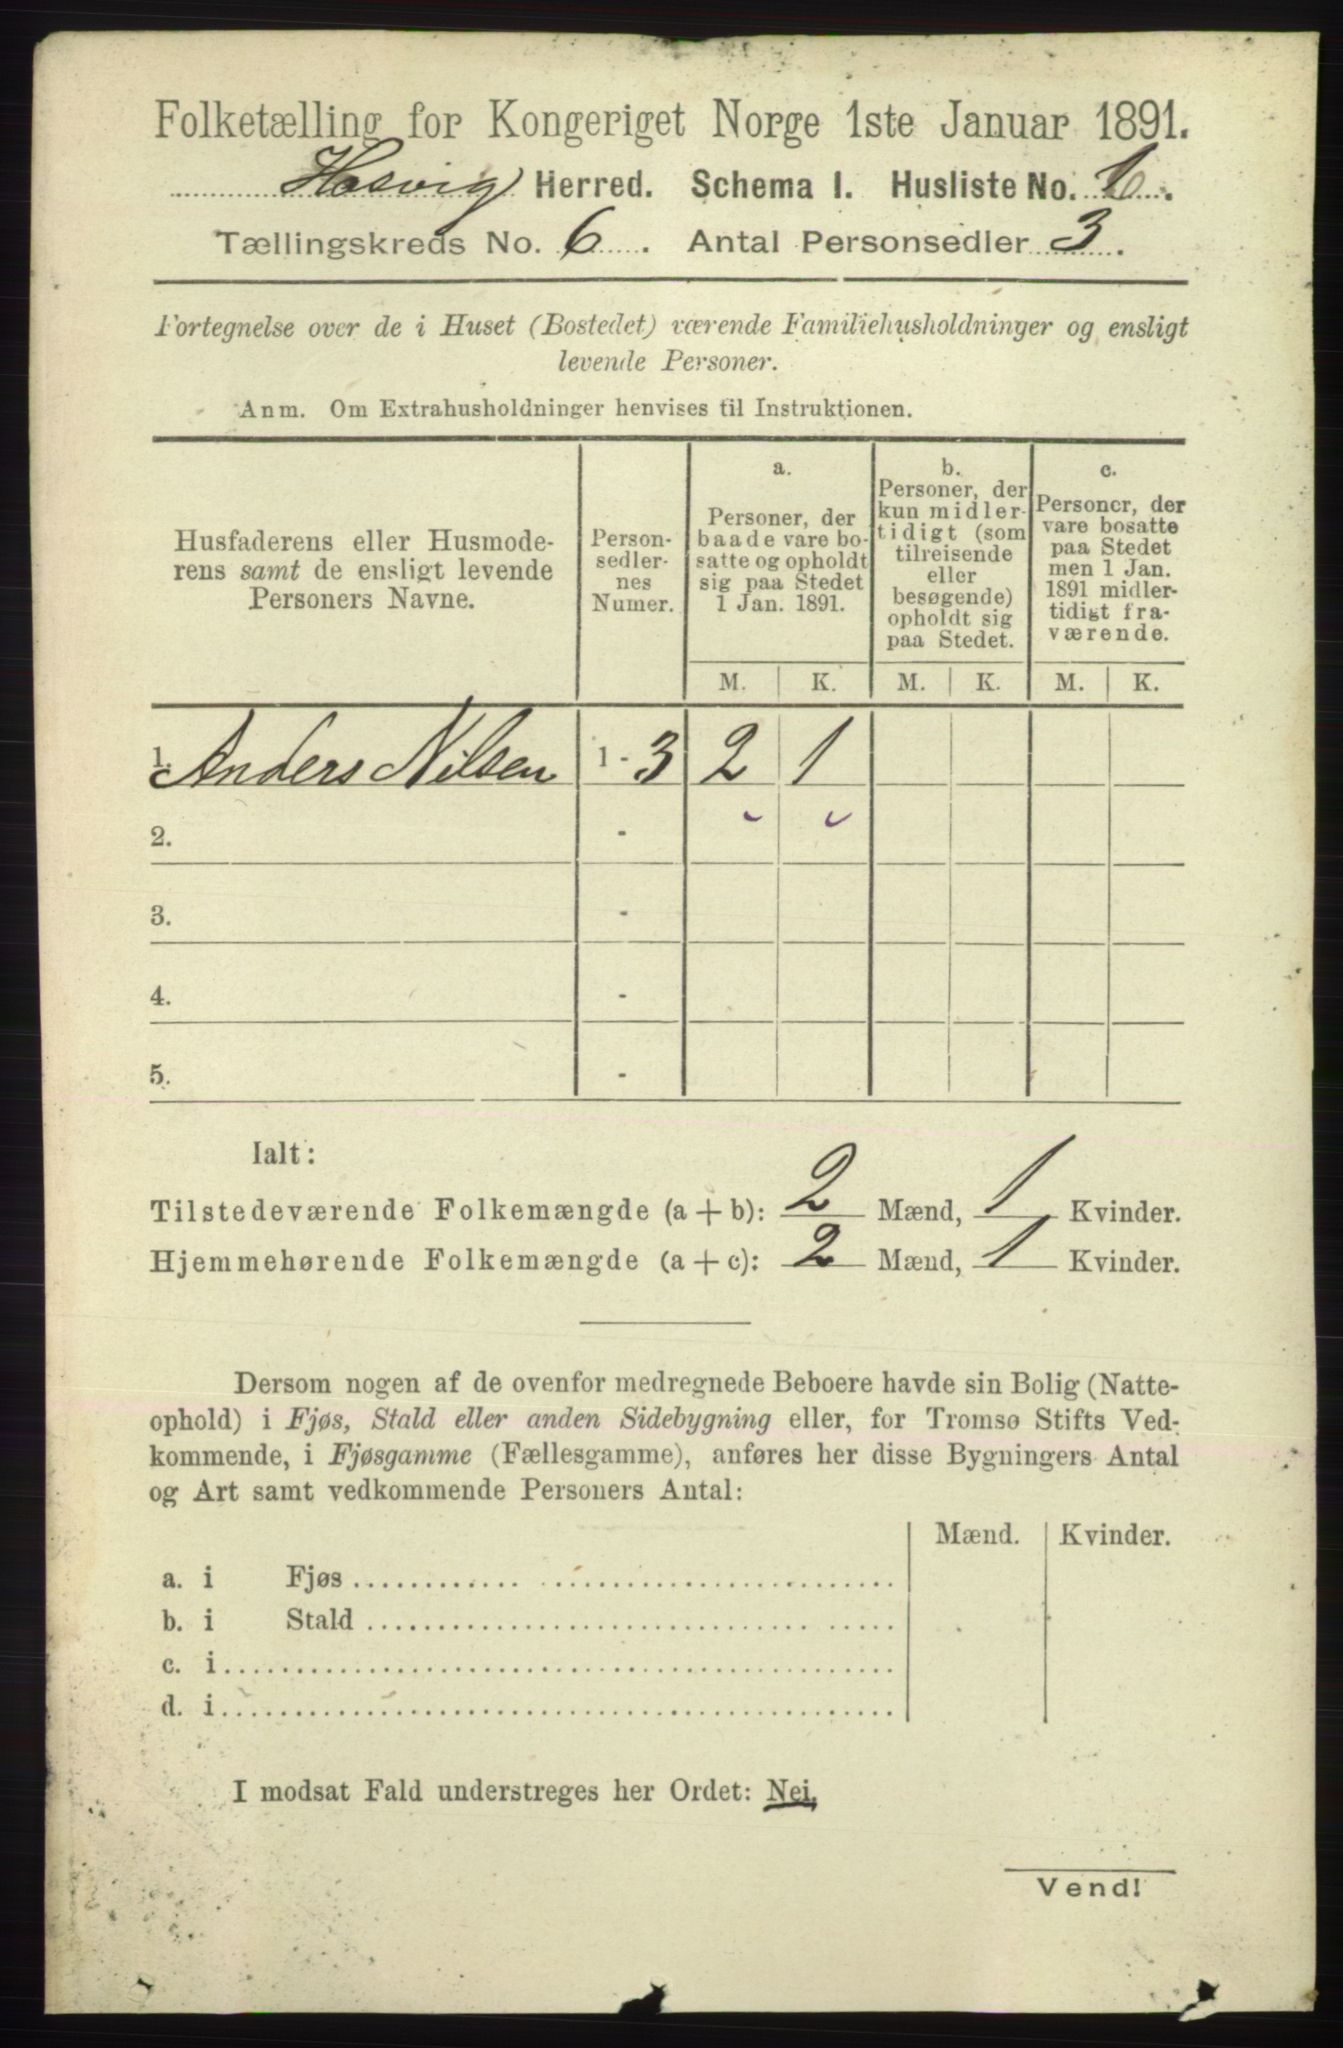 Folketælling for Kongeriget Norge 1ste Januar 1891.
Hasvig Herred. Schema I. Husliste No. 1.
Tællingskreds No. 6. Antal Personsedler 3.
Fortegnelse over de i Huset (Bostedet) værende Familiehusholdninger og ensligt
levende Personer.
Anm. Om Extrahusholdninger henvises til Instruktionen.
Husfaderens eller Husmode-
rens samt de ensligt levende
Personers Navne.
Person-
sedler-
nes
Numer.
a.
Personer, der
baade vare bo-
satte og opholdt
sig paa Stedet
1 Jan. 1891.
b.
Personer, der
kun midler-
tidigt (som
tilreisende
eller
besøgende)
opholdt sig
paa Stedet.
c.
Personer, der
vare bosatte
paa Stedet
men 1 Jan.
1891 midler-
tidigt fra-
værende.
M. K. M. K. M. K.
1. Anders Nilsen 1 - 3 2 1
2. -
3. -
4. -
5. -
Ialt:
Tilstedeværende Folkemængde (a + b): 2 Mænd, 1 Kvinder.
Hjemmehørende Folkemængde (a + c): 2 Mænd, 1 Kvinder.
Dersom nogen af de ovenfor medregnede Beboere havde sin Bolig (Natte-
ophold) i Fjøs, Stald eller anden Sidebygning eller, for Tromsø Stifts Ved-
kommende, i Fjøsgamme (Fællesgamme), anføres her disse Bygningers Antal
og Art samt vedkommende Personers Antal:
Mænd. Kvinder.
a. i Fjøs
b. i Stald
c. i
d. i
I modsat Fald understreges her Ordet: Nei.
Vend!